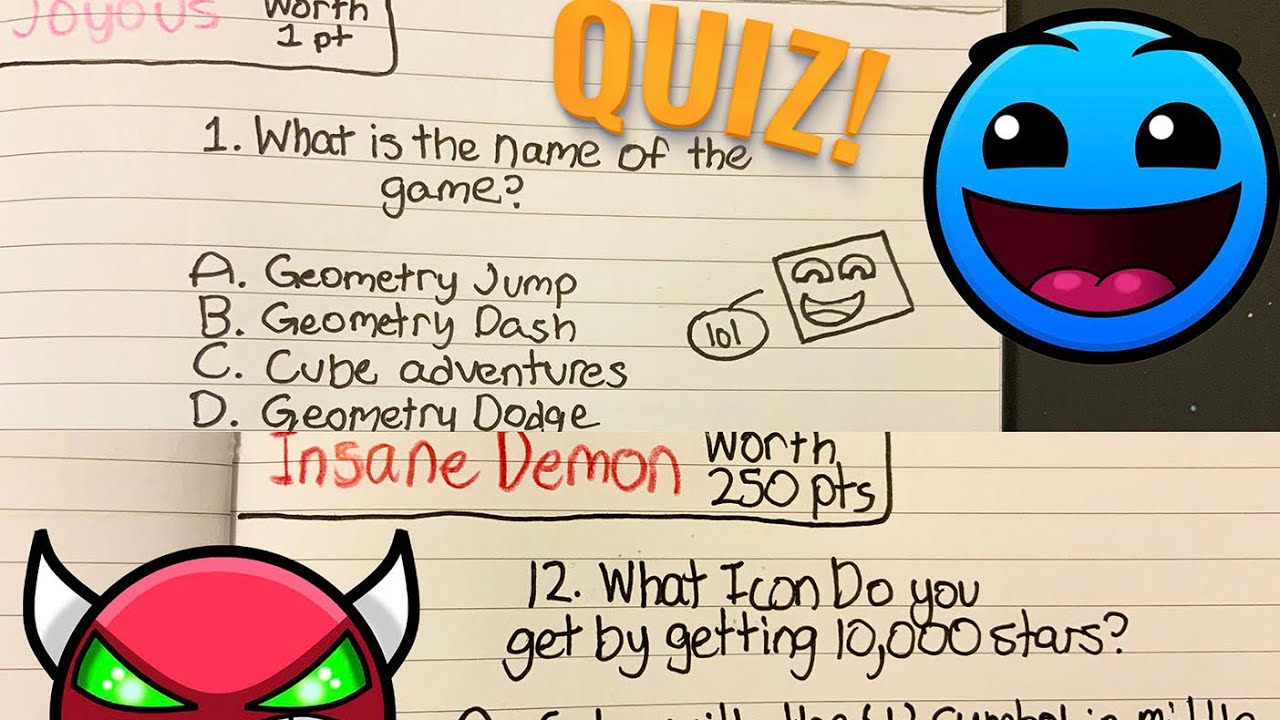 Joyous
Worth
1 pt
QUIZ!
1. What is the name of the
game?
A. Geometry Jump
B. Geometry Dash
C. Cube adventures
D. Geometry Dodge
lol
Insane Demon
worth
250 pts
12. What Icon Do you
get by getting 10,000 stars?